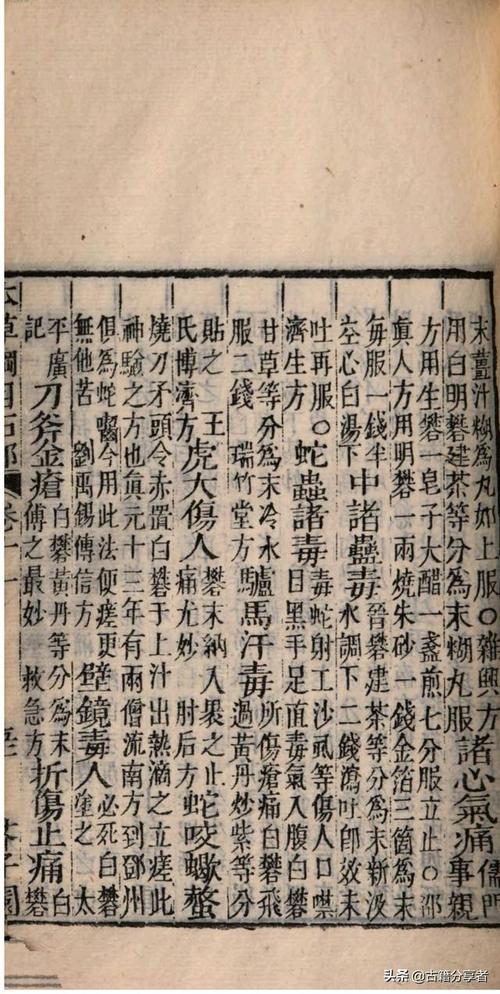 末薑汁糊為丸如上服〇雜興方
用白明礬建茶等分為末糊丸服
諸心氣痛
儒門
事親
方用生礬一皂子大醋一盞煎七分服立止〇邵
真人方用明礬一兩燒朱砂一錢金箔三箇為末
每服一錢半
空心白湯下
中諸蠱毒
晉礬建茶等分為末新汲
水調下二錢瀉吐即效未
吐再服〇
濟生方
蛇蟲諸毒
毒蛇射工沙虱等傷人口噤
目黑手足直毒氣入腹白礬
甘草等分為末冷水
服二錢 瑞竹堂方
驢馬汗毒
所傷瘡痛白礬飛
過黃丹炒紫等分
貼之 王
氏博濟方
虎犬傷人
礬末納入裹之止
痛尤妙 肘后方
蛇咬蠍螫
燒刀矛頭令赤置白礬于上汁出熱滴之立瘥此
神驗之方也真元十三年有兩僧流南方到鄧州
俱為蛇囓令用此法便瘥更
無他苦 劉禹錫傳信方
壁鏡毒人
必死白礬
塗之 太
平廣
記
刀斧金瘡
白礬黃丹等分為末
傅之最妙 救急方
折傷止痛
白
礬
本草綱目石部 卷十一 芥子園
头条 @古籍分享者